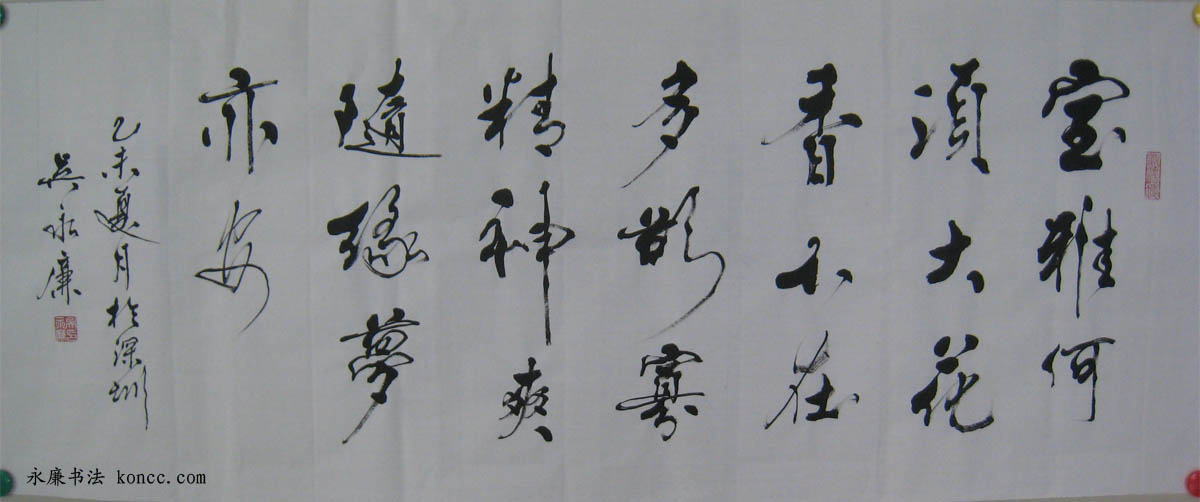 室雅何
須大花
香不在
多欲寡
精神爽
隨緣夢
亦安
乙未夏月於深圳
吴永廉
永廉书法 koncc.com